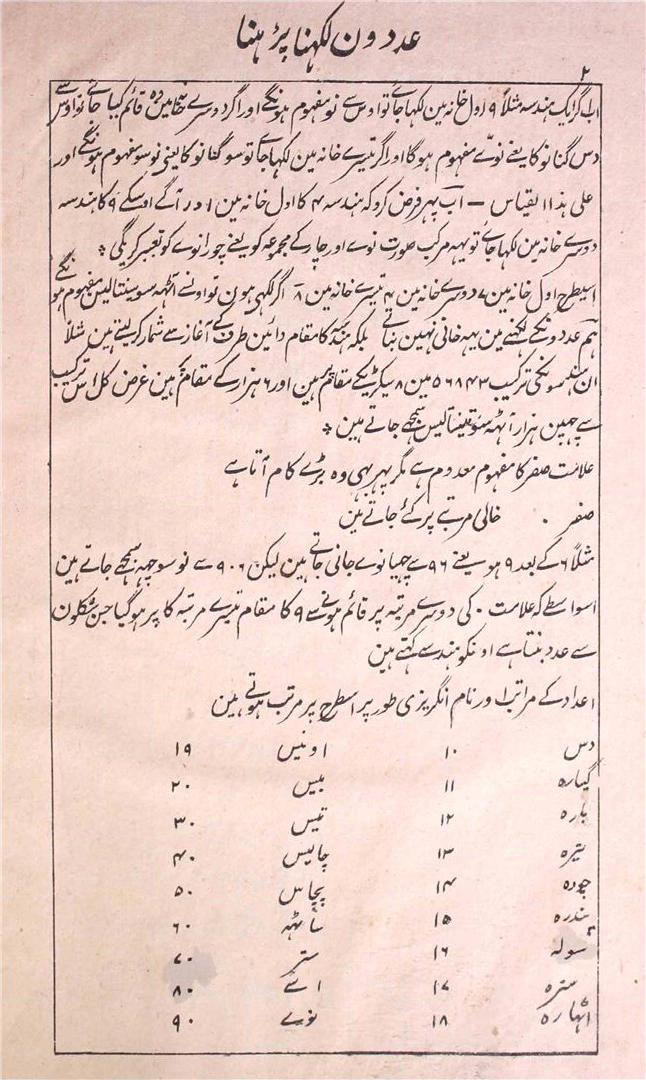 عددون لکهنا پڑهنا
۲
اب اگر ایک هندسه مثلاً ۹ اول خانه مین لکها جاے تو اوس سے نو مفهوم هونگے اور اگر دوسرے خانه مین وه قائم کیا جاے تو اوس سے
دس گنا نو کا یعنے نوّے مفهوم هوگا اور اگر تیسرے خانه مین لکها جاے تو سو گنا نو کا یعنی نو سو مفهوم هونگے اور
علی هذا القیاس – اب پهر فرض کرو که هندسه ۴ کا اول خانه مین اور آگے اوسکے ۹ کا هندسه
دوسرے خانه مین لکها جاے تو یهه مرکب صورت نوے اور چار کے مجموعه کو یعنے چورانوے کو تعبیر کریگی *
اسیطرح اول خانه مین ۷ دوسرے خانه مین ۴ تیسرے خانه مین ۸ اگر لکهی هون تو اونسے آٹهه سو سنتالیس مفهوم هونگے
هم عددونکے لکهنے مین یهه خانی نهین بناتے بلکه هندسه کا مقام دائین طرف کے آغاز سے شمار کر لیتے هین مثلاً
ان هندسونکی ترکیب ۵۶۸۴۳ مین ۸ سیکڑیکے مقام پر هین اور ۶ هزار کے مقام پر هین غرض کل اس ترکیب
سے چهپن هزار آٹهه سو تینتالیس سمجهے جاتے هین *
علامت صفر کا مفهوم معدوم هے مگر پهر بهی وه بڑے کام آتا هے
صفر ۰ خالی مرتبے پر کئے جاتے هین
مثلاً ۶ کے بعد ۹ هو یعنے ۹۶ سے چهیانوے جانی جاتے هین لیکن ۹۰۶ سے نو سو چهه سمجهے جاتے هین
اسواسطے که علامت ۰ کی دوسرے مرتبه پر قائم هونے سے ۹ کا مقام تیسرے مرتبه کا پر هوگیا جن شکلون
سے عدد بنتا هے اونکو هندسے کهتے هین
اعداد کے مراتب اور نام انگریزی طور پر اسطرح پر مرتب هوتے هین
دس ۱۰ اونیس ۱۹
گیاره ۱۱ بیس ۲۰
باره ۱۲ تیس ۳۰
تیره ۱۳ چالیس ۴۰
چوده ۱۴ پچاس ۵۰
پندره ۱۵ ساٹهه ۶۰
سوله ۱۶ ستر ۷۰
ستره ۱۷ اسے ۸۰
اٹهاره ۱۸ نوے ۹۰